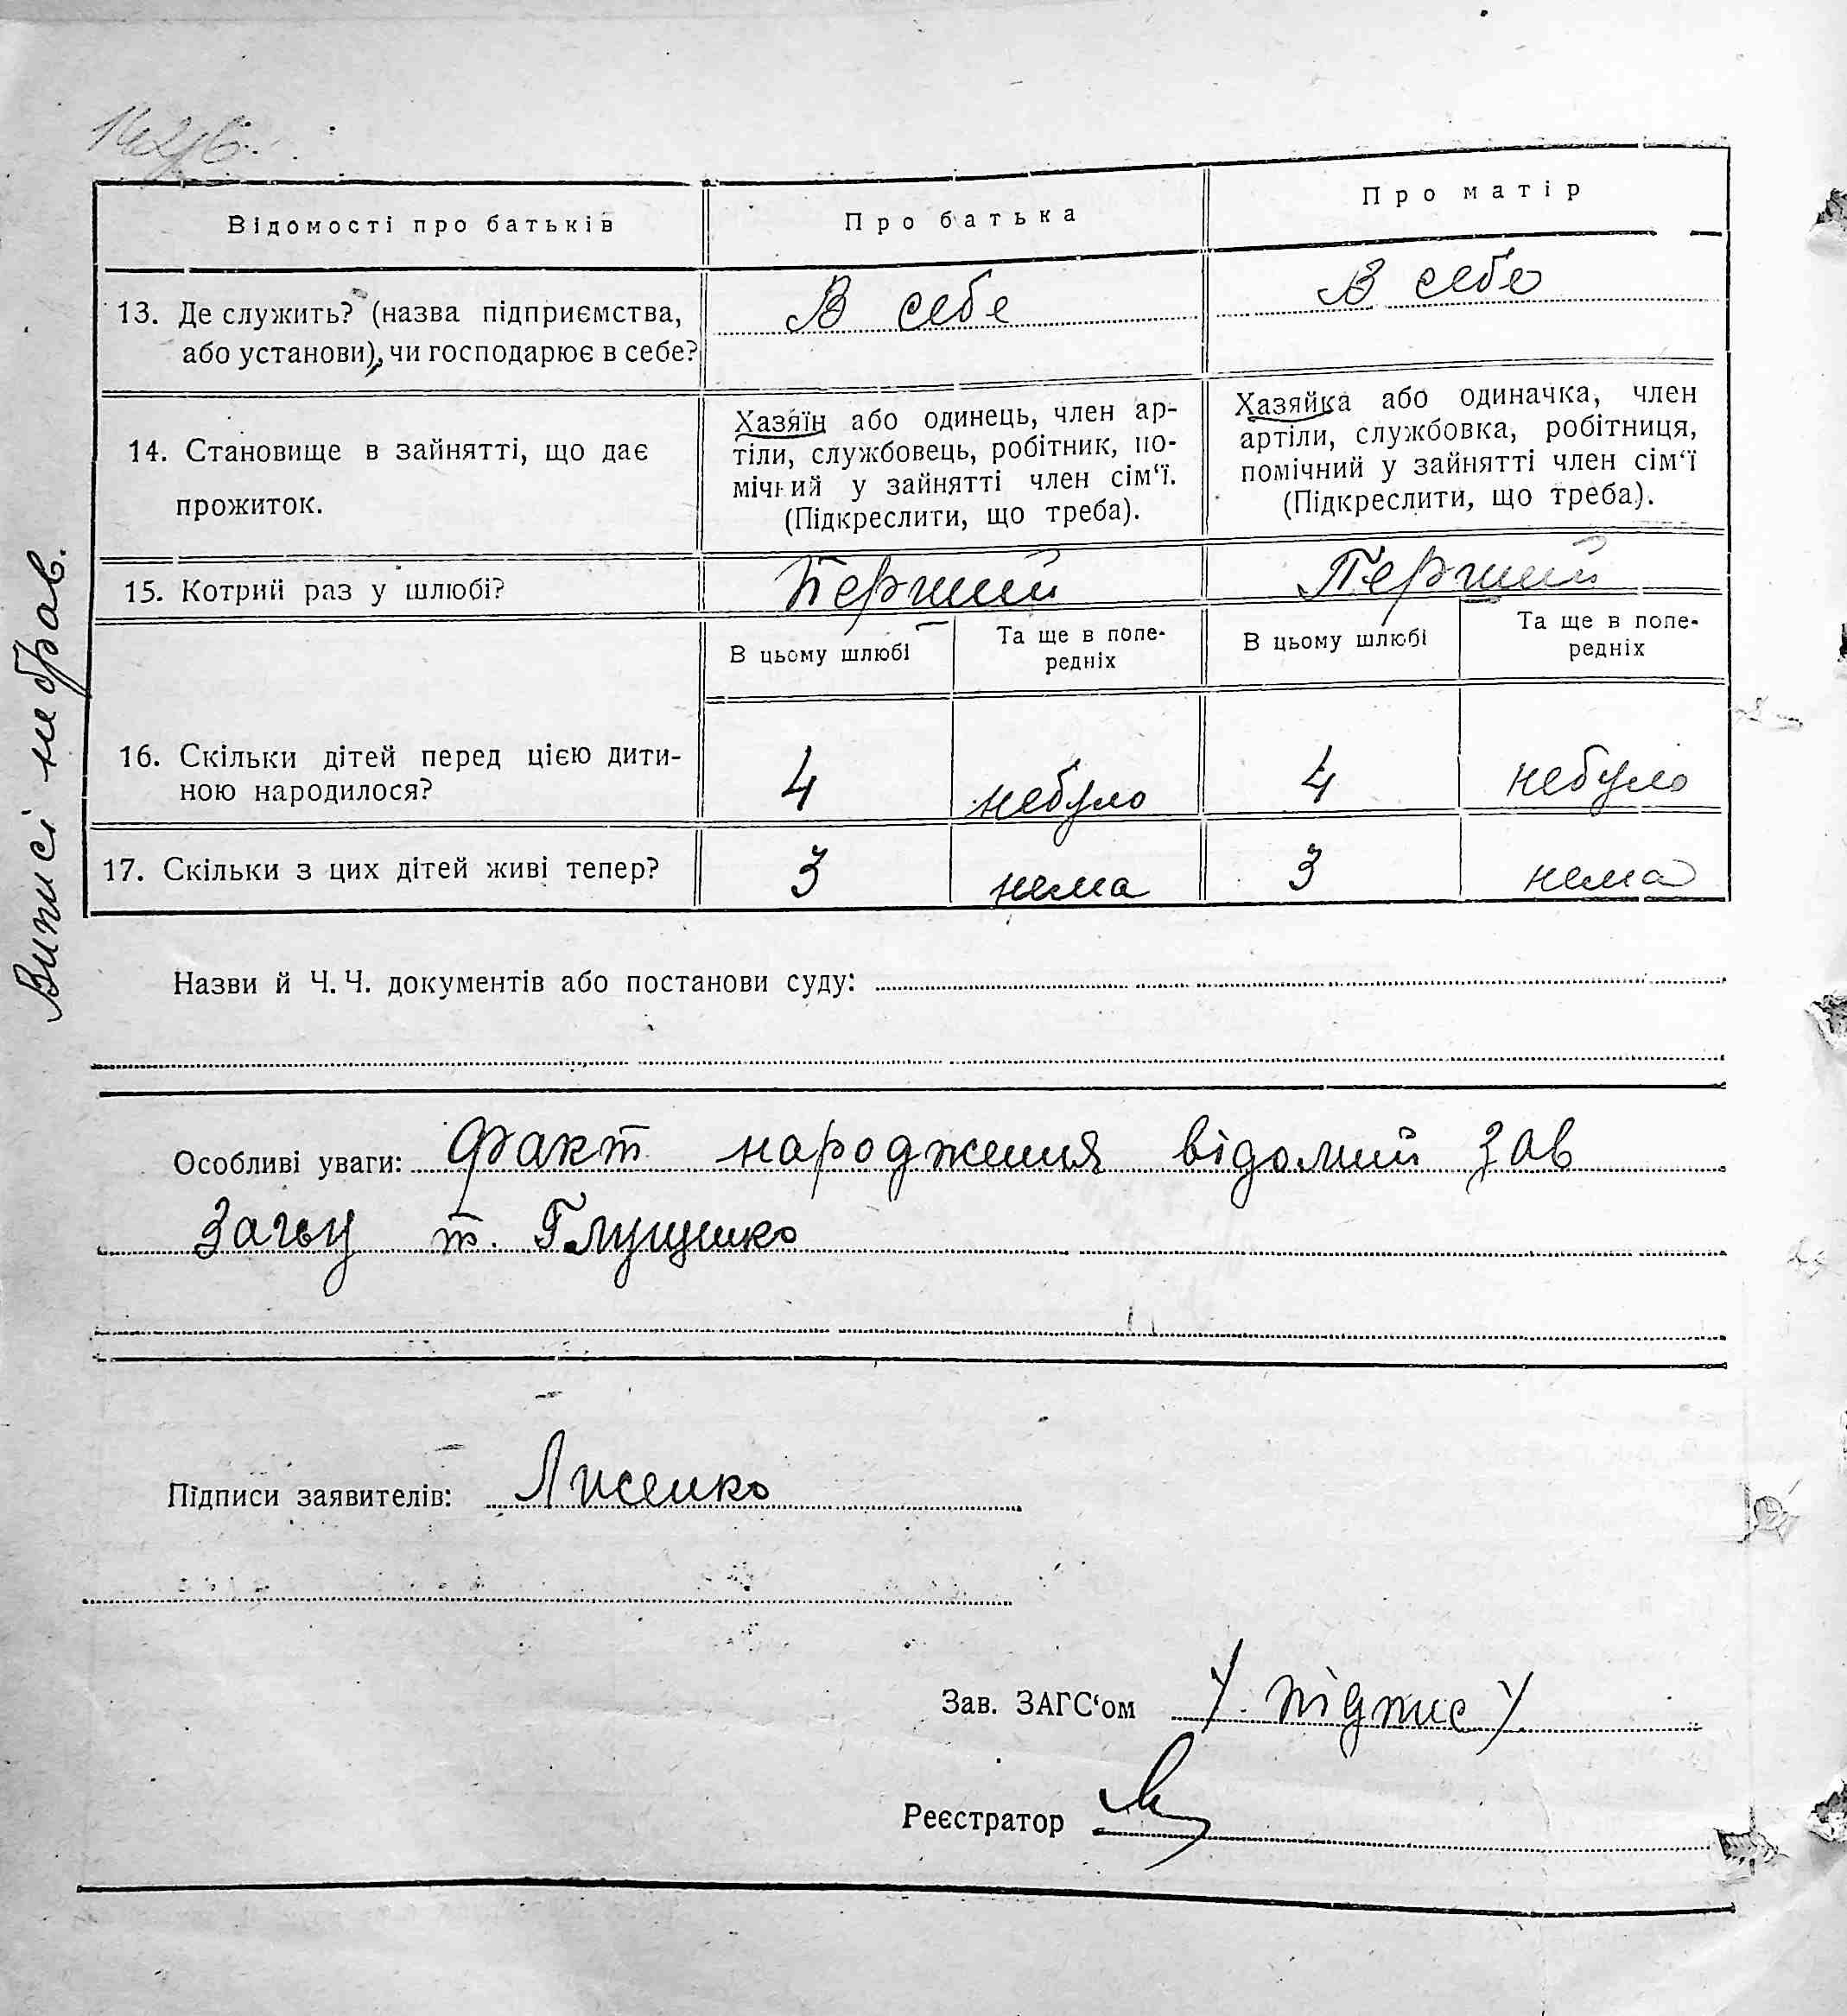 Відомості про батьків
Про батька
Про матір
13. Де служить? (назва підприємства,
або установи), чи господарює в себе?
В себе
В себе
14. Становище в зайнятті, що дає
прожиток.
Хазяїн або одинець, член ар-
тіли, службовець, робітник, по-
мічний у зайнятті член сім‘ї.
(Підкреслити, що треба).
Хазяйка або одиначка, член
артіли, службовка, робітниця,
помічний у зайнятті член сім‘ї
(Підкреслити, що треба).
15. Котрий раз у шлюбі?
Перший
Перший
В цьому шлюбі
Та ще в попе-
редніх
В цьому шлюбі
Та ще в попе-
редніх
16. Скільки дітей перед цією дити-
ною народилося?
4
небуло
4
небуло
17. Скільки з цих дітей живі тепер?
3
нема
3
нема
Виписі не брав.
Назви й Ч. Ч. документів або постанови суду:
Особливі уваги: Факт народження відомий зав
Загсу т. Глущенко
Підписи заявителів: Лисенко
Зав. ЗАГС‘ом / підпис /
Реєстратор